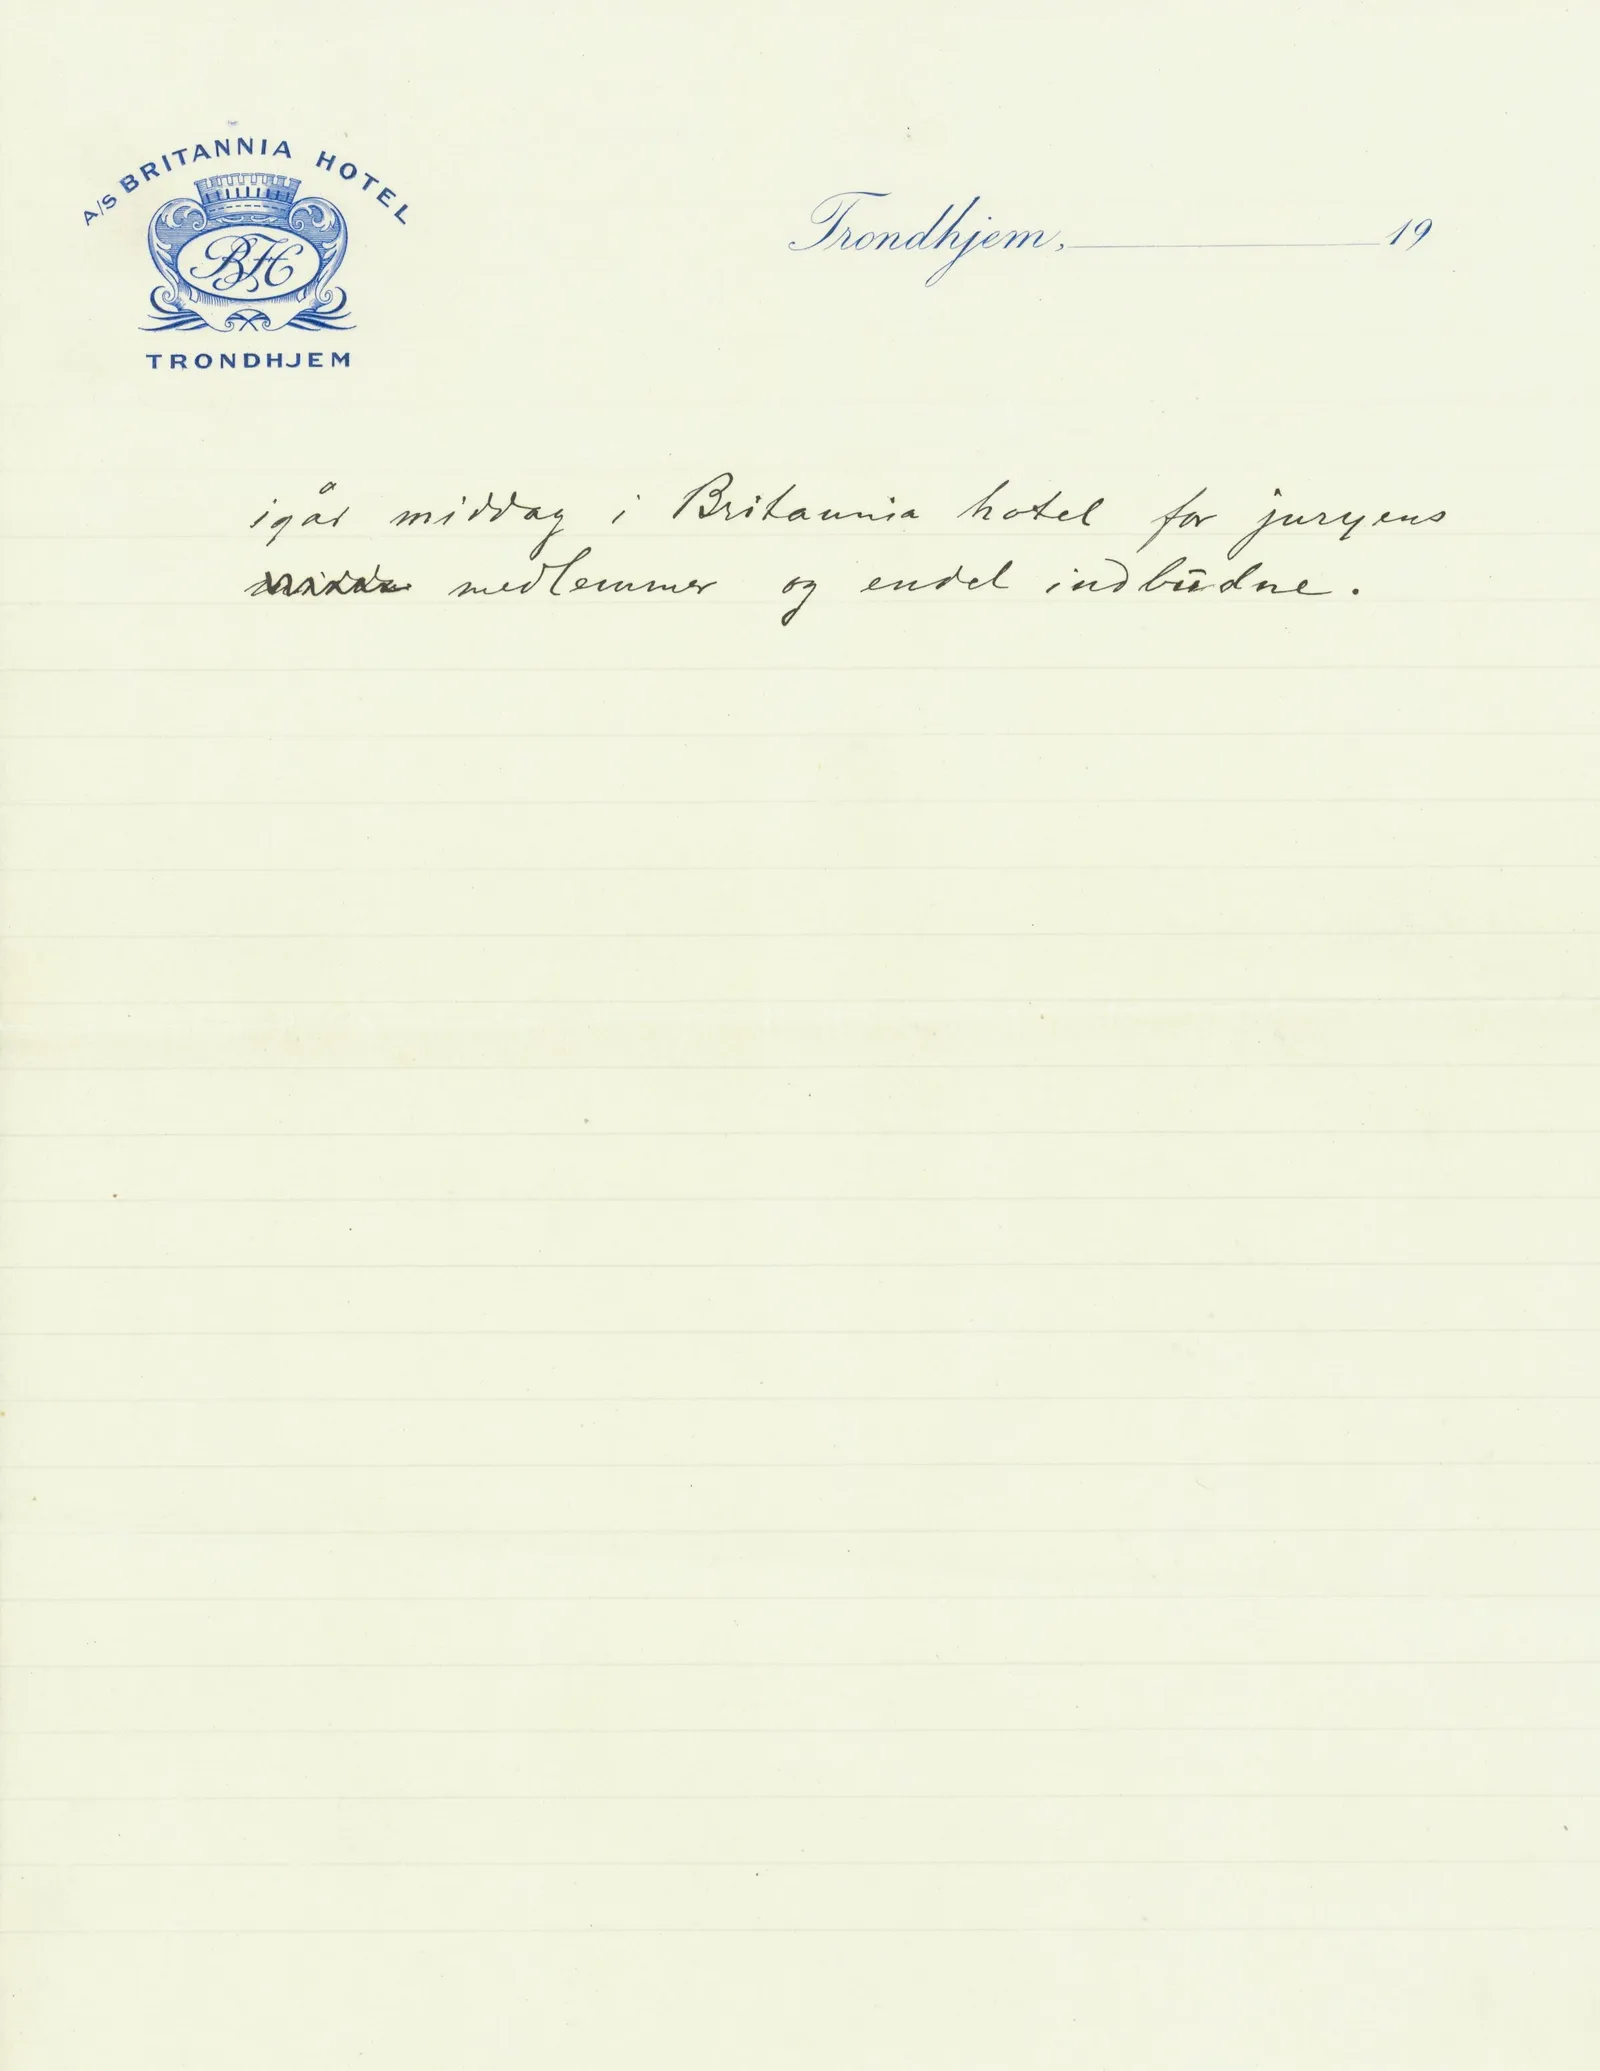 A/S BRITANNIA HOTEL
BH
TRONDHJEM
Trondhjem, 19
igår middag i Britannia hotel for juryens
medlemmer og endel indbudne.